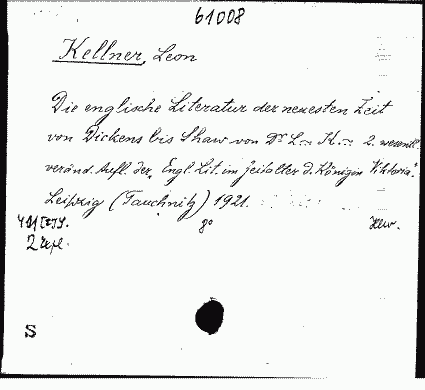 61008
Kellner, Leon
Die englische Literatur der neuesten Zeit
von Dickens bis Shaw von Dr L.= K.= 2. wesentl.
veränd. Aufl. der „Engl. Lit. im Zeitalter d. Königin Viktoria“.
Leipzig (Tauchnitz) 1921.
8°
2
S